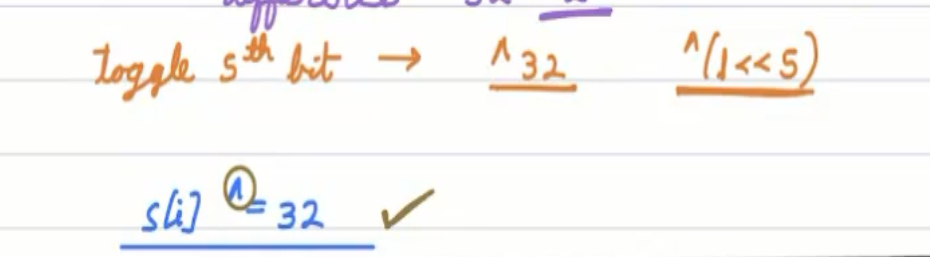 toggle 5th bit → ^32 ^(1<<5)
s[i] ^= 32 ✓